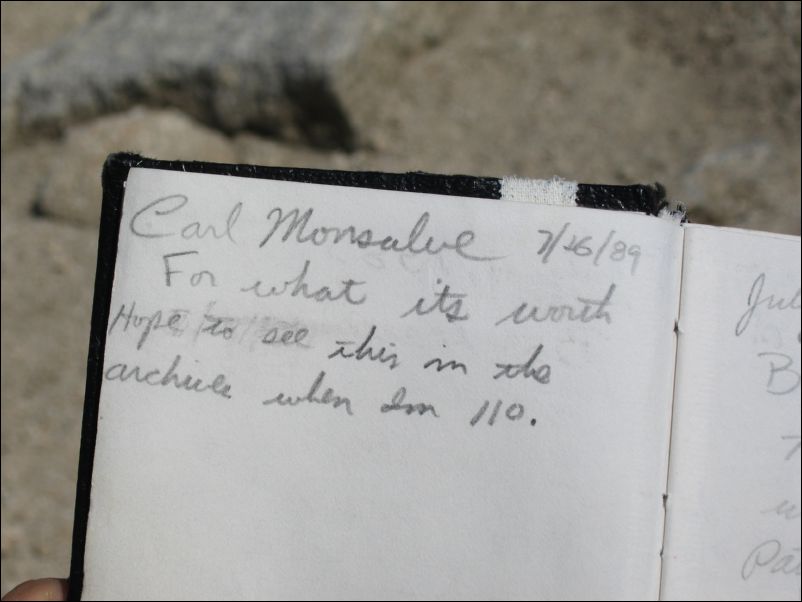 Carl Monsalve 7/26/89
For what its worth
Hope to see this in the
archives when Im 110.
Jul
B
Pat